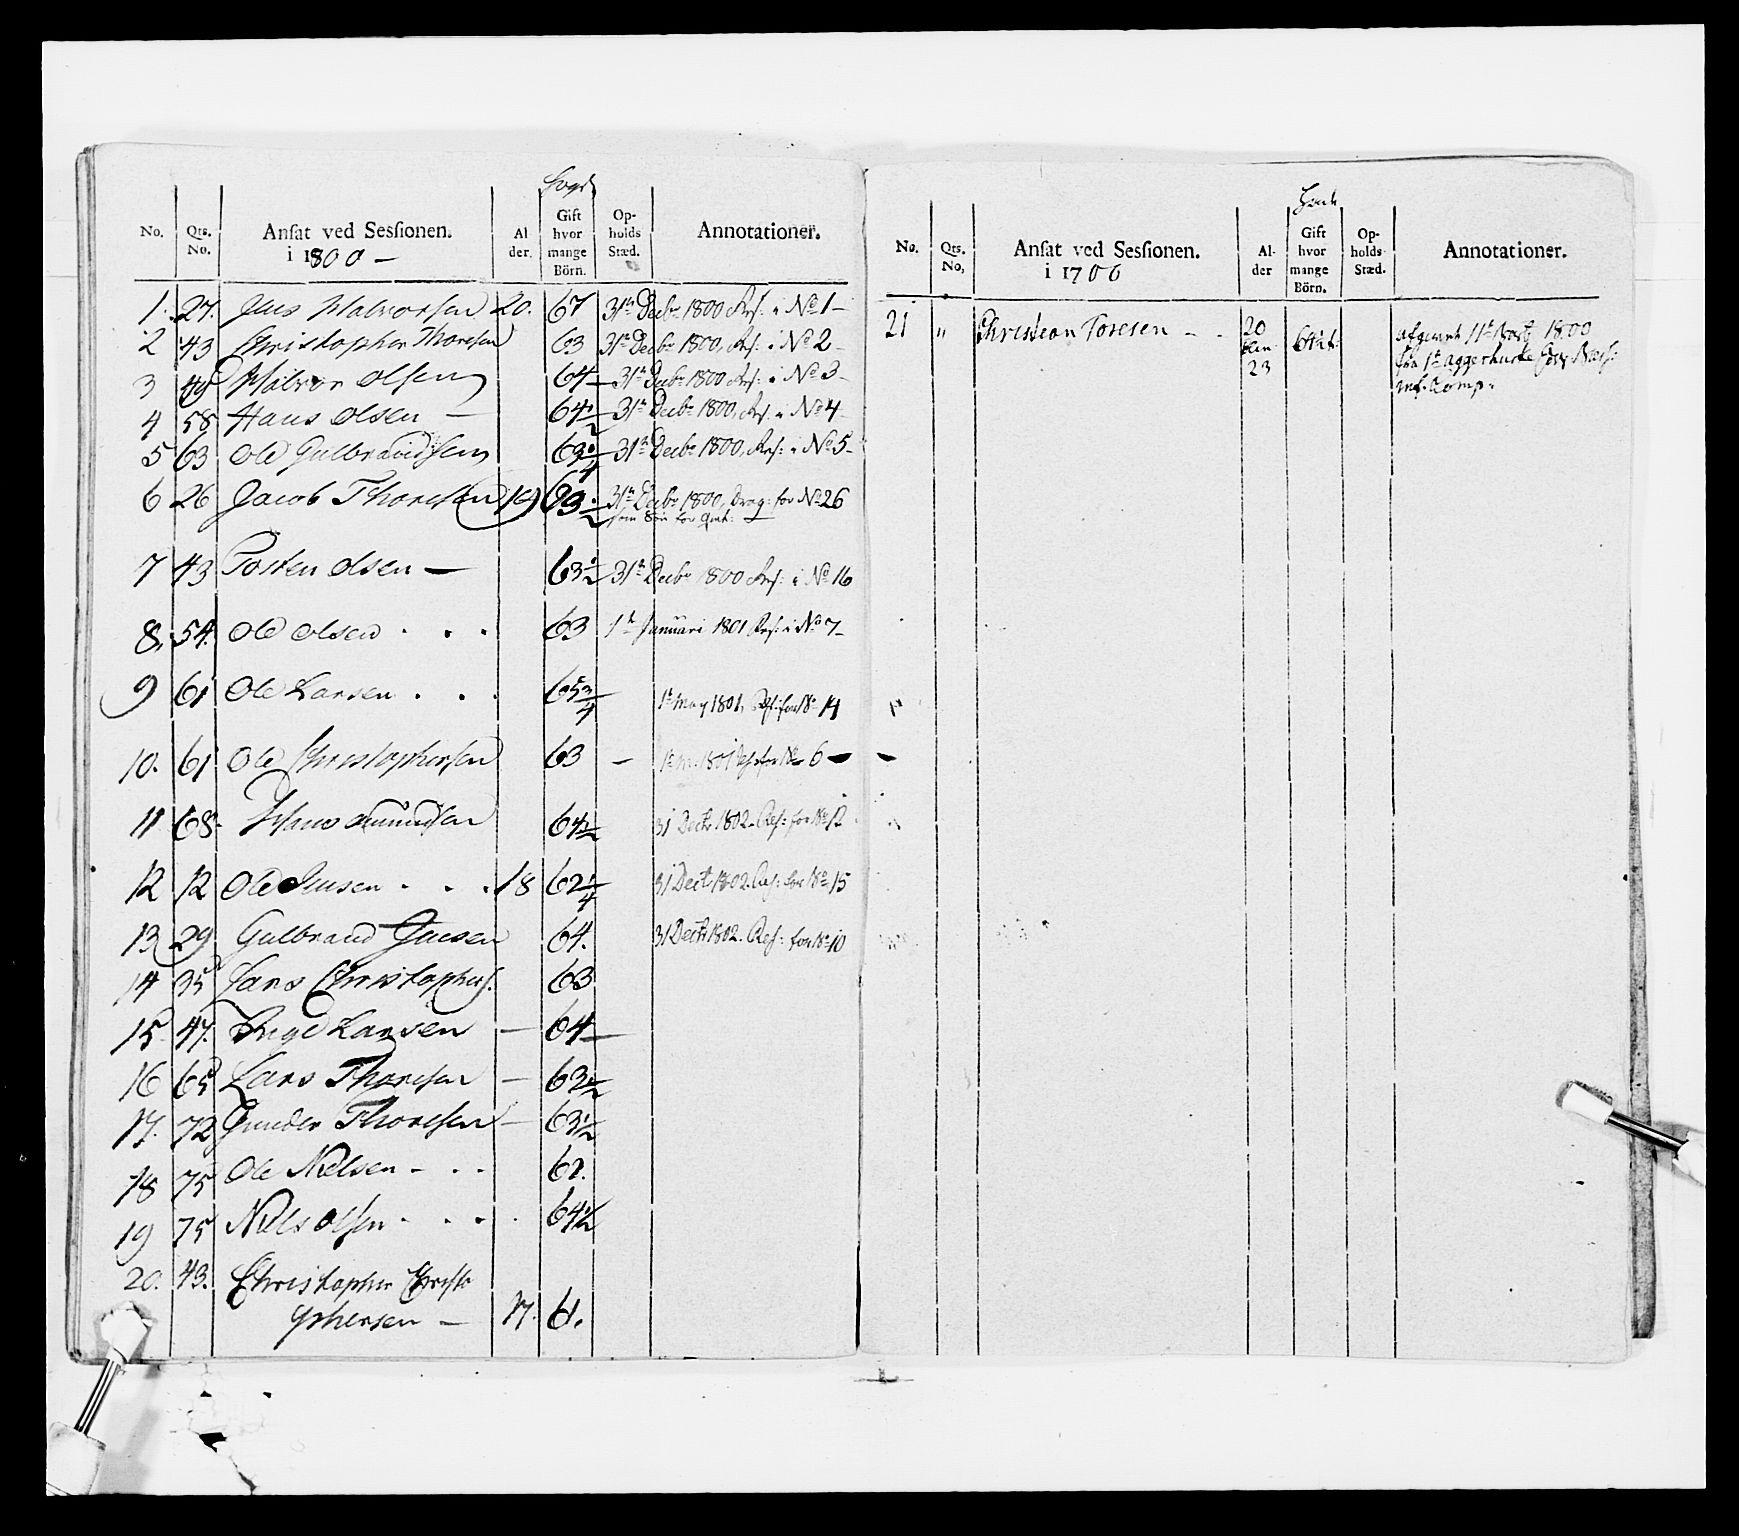 No. Qrs. No. Ansat ved Sessionen. i 1800 – Al der. Gift hvor mange Börn. Op- holds Stæd. Annotationer.
1. 27. Jens Halvorsen 20. 67 31te Decbr 1800 Res: i No 1 –
2 43 Christopher Thoresen 63 31te Decbr 1800, Res: i No 2 –
3 49 Halvor Olsen 64 – 31te Decbr 1800 Res: i No 3 –
4 58 Hans Olsen – 64½ 31te Decbr 1800, Res: i No 4 –
5 63 Ole Gulbrandsen 63¾ 31te Decbr 1800, Res: i No 5 –
6 26 Jacob Thoresen 19 63½ 31te Decbr 1800, Drag: for No 26
7 43 Tosten Olsen – 63½ 31te Decbr 1800 Res: i No 16
8. 54. Ole Olsen . . . 63 1te Januari 1801 Res: i No 7 –
9 61 Ole Larsen . . . 65¾ 1te May 1801, Res: for No 14
10. 61 Ole Christophersen 63 – 1801 Res: for No 6 –
11 68. Hans Amundsen 64½ 31 Decbr 1802. Res: for No 12
12 12 Ole Jensen . . . 18 62¼ 31 Decbr 1802. Res: for No 15
13 29 Gulbrand Jensen 64. 31 Decbr 1802. Res: for No 10
14 35 Lars Christophers. 63
15 47. Lars en – 64 –
16 65 Lars Thoresen – 63½
17. 72 Gunder Thoresen – 63½
18 75 Ole Nielsen – . . 62.
19 75 Niels Olsen . . . . 64½
20. 43. Christopher Christo
phersen – 17. 61.
No. Qrs. No, Ansat ved Sessionen. i 1700 Al- der Gift hvor mange Börn. Op- holds- Stæd. Annotationer.
21 " Christian Toresen – . 20 afgaaet 11te 1800
fra 1te Aggerhuske
23